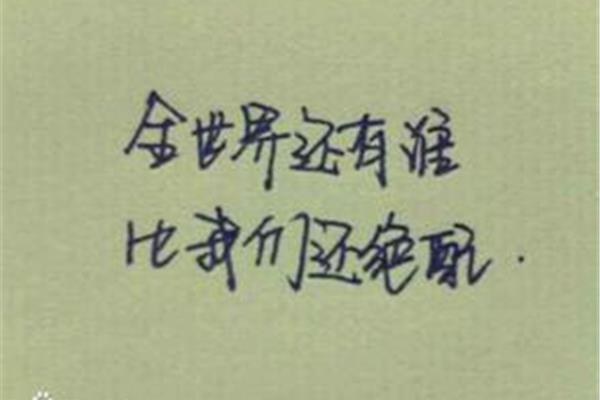 全世界还有谁
比我们还绝配.